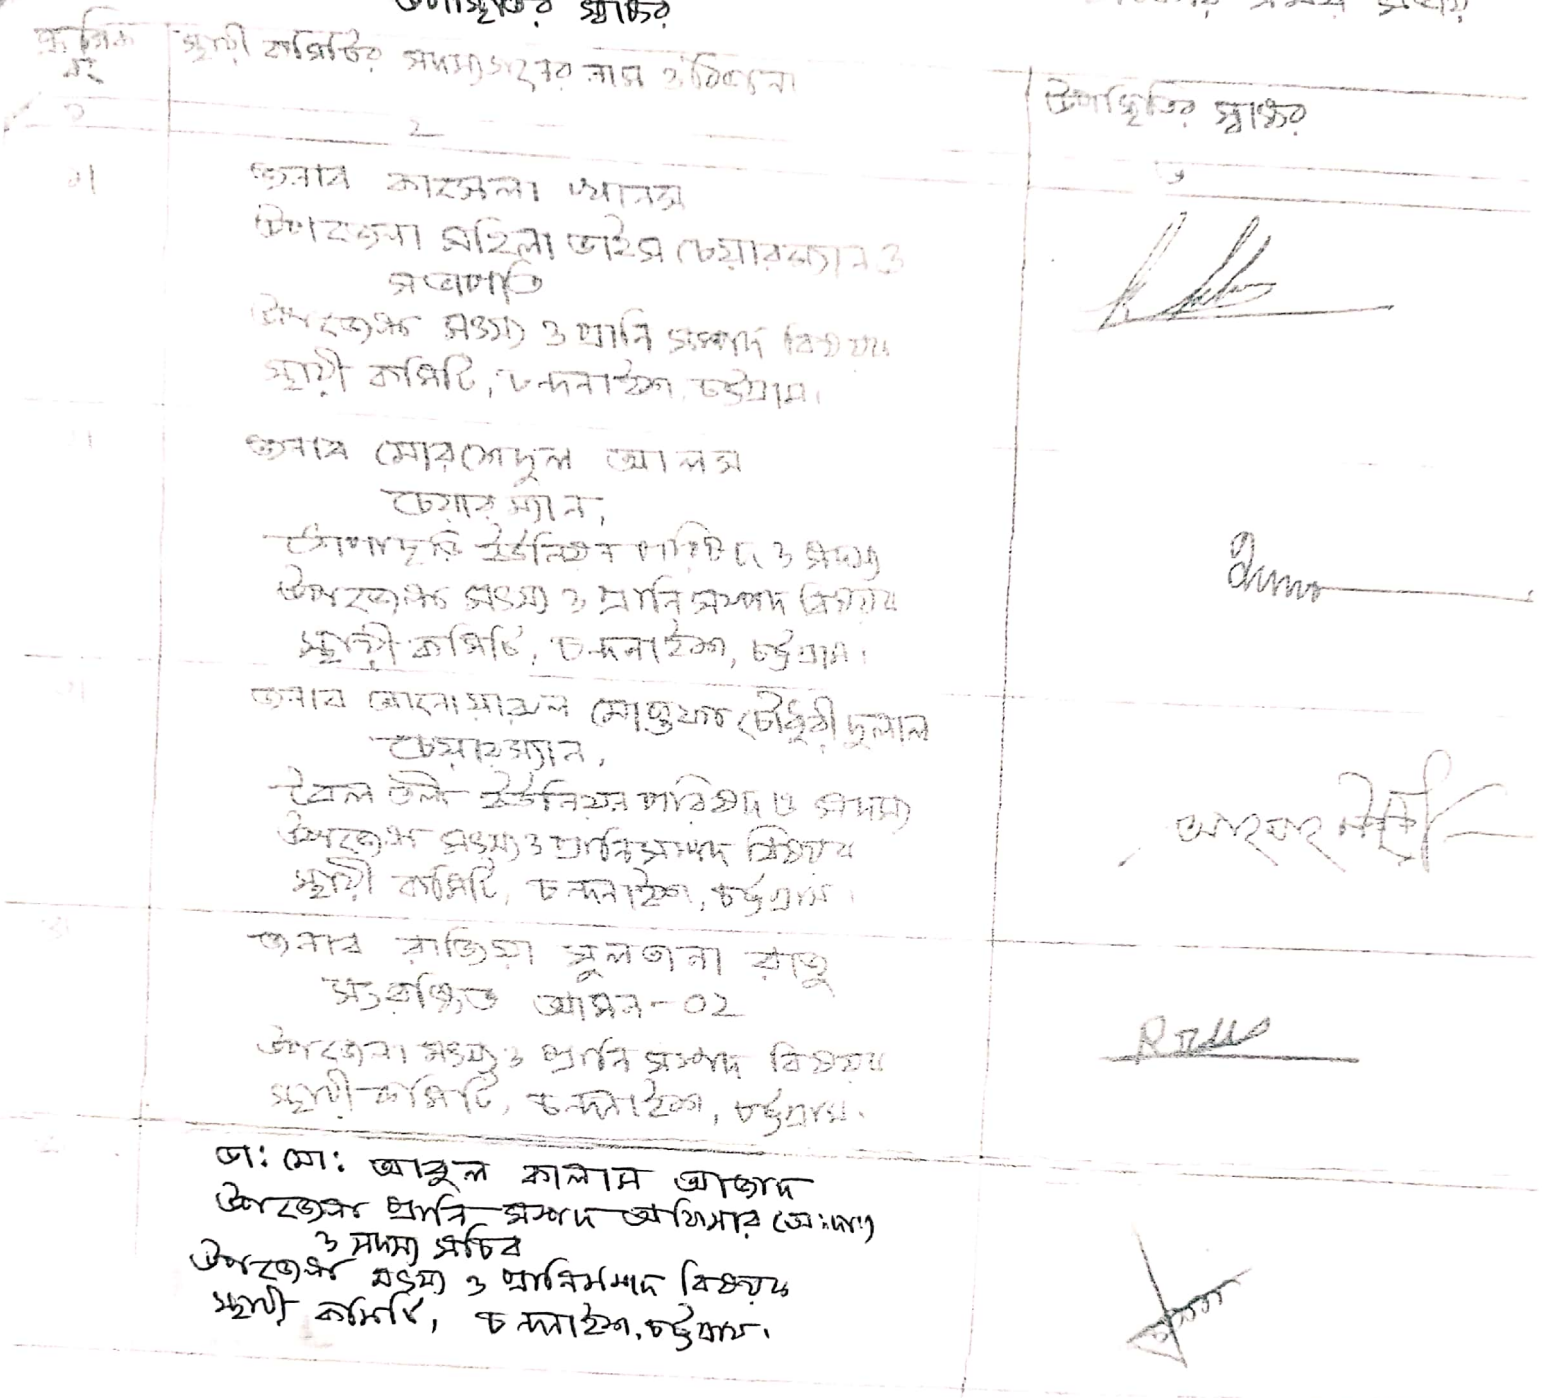 উপস্থিতির স্বাক্ষর
ক্রমিক নং
স্থায়ী কমিটির সদস্যগনের নাম ও ঠিকানা
উপস্থিতির স্বাক্ষর
১
২
৩
জনাব কামেলা খানম
উপজেলা মহিলা ভাইস চেয়ারম্যান ও
সভাপতি
উপজেলা মৎস্য ও প্রানি সম্পদ বিষয়ক
স্থায়ী কমিটি, চন্দনাইশ, চট্টগ্রাম।
জনাব মোরশেদুল আলম
চেয়ারম্যান,
ইউনিয়ন পরিষদ ও সদস্য
উপজেলা মৎস্য ও প্রানি সম্পদ বিষয়ক
স্থায়ী কমিটি, চন্দনাইশ, চট্টগ্রাম।
জনাব আনোয়ারুল মোস্তফা চৌধুরী দুলাল
চেয়ারম্যান,
বৈলতলী ইউনিয়ন পরিষদ ও সদস্য
উপজেলা মৎস্য ও প্রানি সম্পদ বিষয়ক
স্থায়ী কমিটি, চন্দনাইশ, চট্টগ্রাম।
জনাব রাজিয়া সুলতানা রাজু
সংরক্ষিত আসন-০২
উপজেলা মৎস্য ও প্রানি সম্পদ বিষয়ক
স্থায়ী কমিটি, চন্দনাইশ, চট্টগ্রাম।
ডা: মো: আবুল কালাম আজাদ
উপজেলা প্রানি সম্পদ অফিসার (অ:দা:)
ও সদস্য সচিব
উপজেলা মৎস্য ও প্রানিসম্পদ বিষয়ক
স্থায়ী কমিটি, চন্দনাইশ, চট্টগ্রাম।